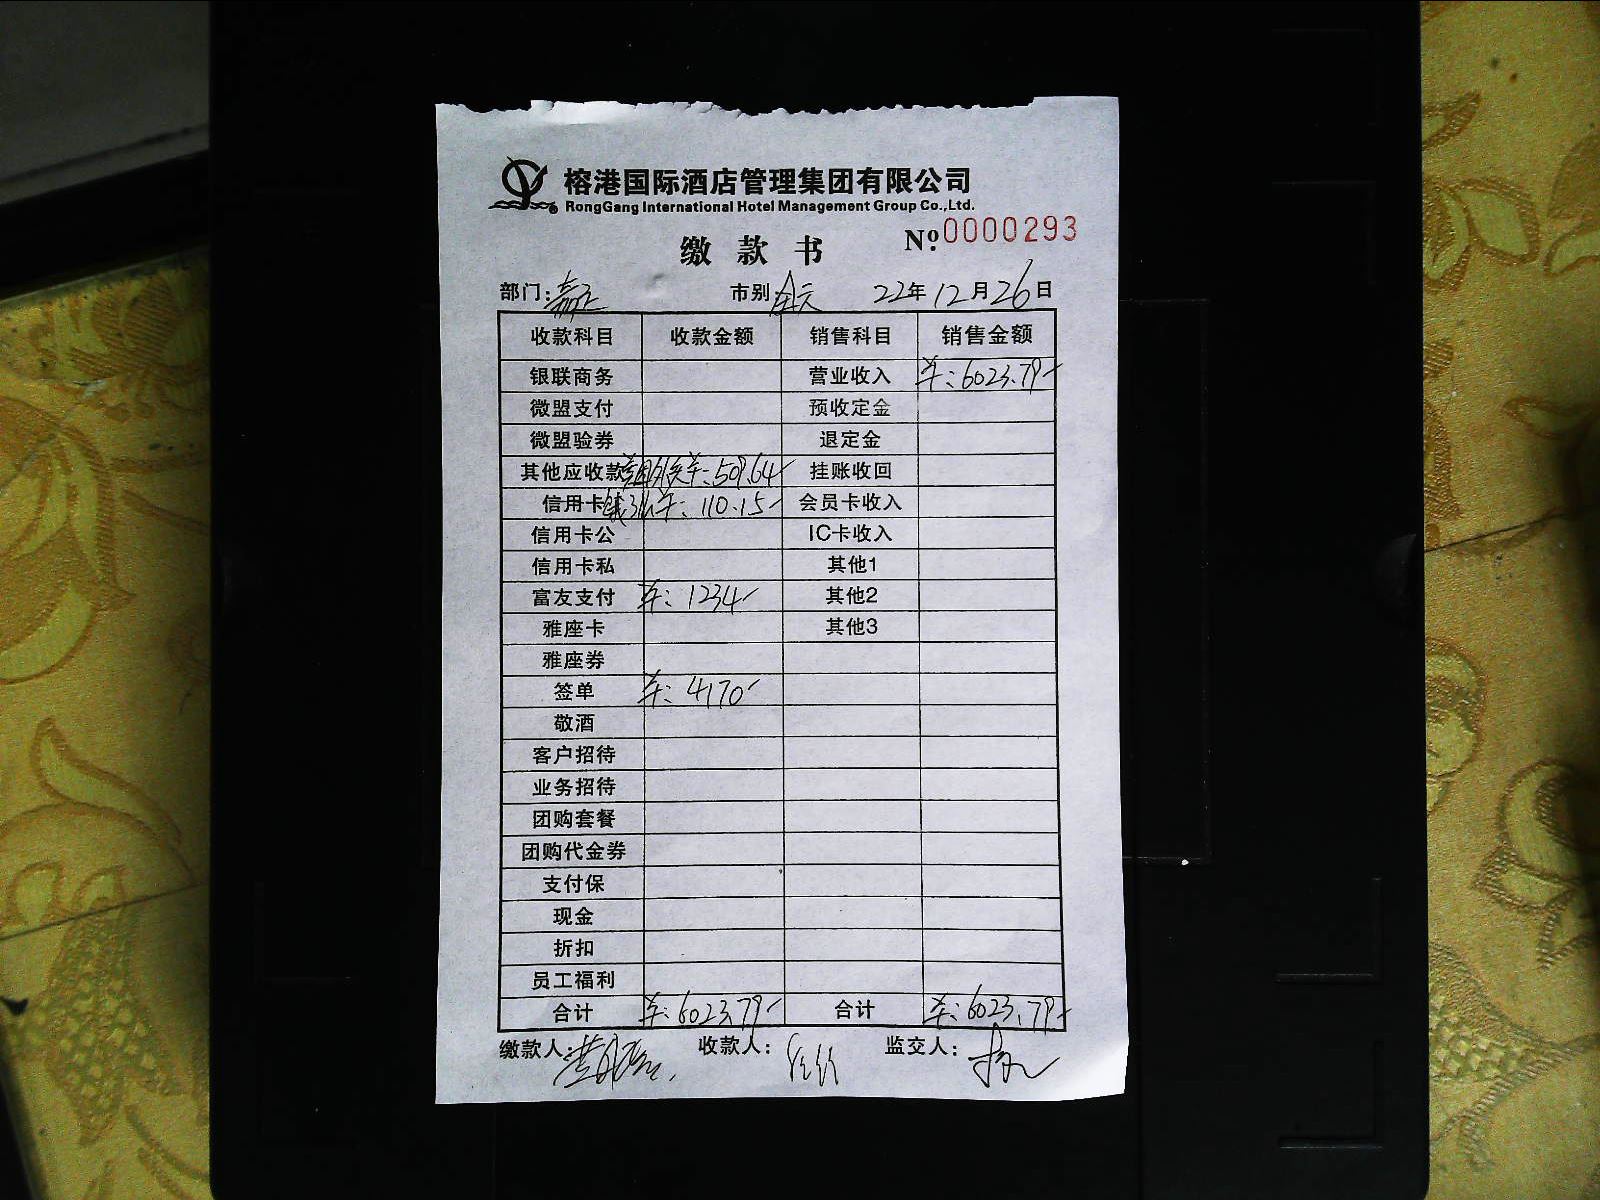 榕港国际酒店管理集团有限公司
RongGang International Hotel Management Group Co.,Ltd.
缴款书 №0000293
部门: 市别 全天 22年12月26日
收款科目 收款金额 销售科目 销售金额
银联商务 营业收入 6023.79
微盟支付 预收定金
微盟验券 退定金
其他应收款 509.64 挂账收回
信用卡 110.15 会员卡收入
信用卡公 IC卡收入
信用卡私 其他1
富友支付 1234 其他2
雅座卡 其他3
雅座券
签单 4170
敬酒
客户招待
业务招待
团购套餐
团购代金券
支付保
现金
折扣
员工福利
合计 6023.79 合计 6023.79
缴款人: 收款人: 监交人: